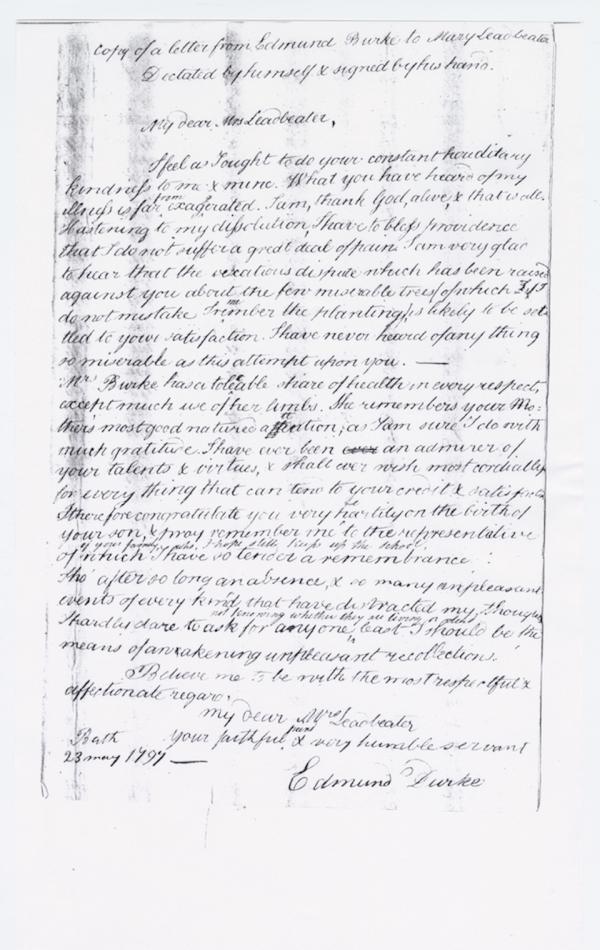 Copy of a letter from Edmund Burke to Mary Leadbeater
Dictated by himself & signed by his hand.
My dear Mrs Leadbeater,
I feel as I ought to do your constant hereditary
kindness to me & mine. What you have heard of my
illness is far from exagerated. I am, thank God, alive, & that is all.
Hastening to my dissolution, I have to bless providence
that I do not suffer a great deal of pain. I am very glad
to hear that the vexatious dispute which has been raised
against you about the few miserable trees (of which if I
do not mistake I remember the planting) is likely to be set
tled to your satisfaction. I have never heard of any thing
so miserable as this attempt upon you. —
Mrs Burke has a toleable share of health in every respect,
except much use of her limbs. She remembers your Mo:
thers most good natured attention, as I am sure I do with
much gratitude. I have ever been ever an admirer of
your talents & virtues, & shall ever wish most cordially
for every thing that can tend to your credit & satisfaction
I therefore congratulate you very heartily on the birth of
your son, & pray remember me to the representative
of your family, who, I hope still keeps up the school,
of which I have so tender a remembrance.
Tho' after so long an absence, & so many unpleasant
events of every kind that have distracted my thoughts
not knowing whether they are living or dead
I hardly dare to ask for anyone, least I should be the
means of awakening unpleasant recollections.
Believe me to be with the most respectful &
affectionate regard,
My dear Mrs Leadbeater
your faithful friend & very humble servant
Bath
23 may 1797 —
Edmund Burke